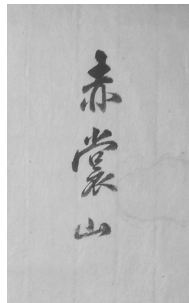 赤裳山